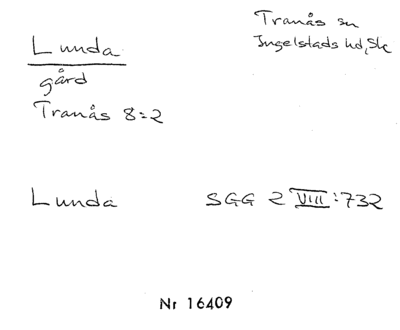 Lunda
Tranås sn
Ingelstads hd, Sk
gård
Tranås 8:2
Lunda SGG 2 VIII:732
Nr 16409